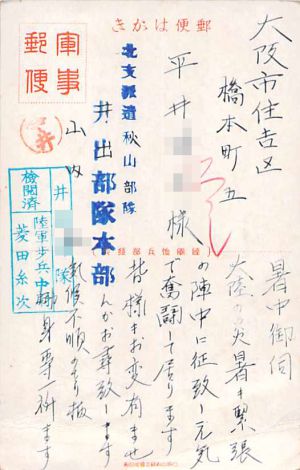 郵便はがき
軍事
郵便
大阪市住吉区
橋本町五
平井
様
北支派遣秋山部隊
井出部隊本部
山内
検閲済
井
隊
陸軍歩兵中
菱田糸次
暑中御伺
大陸の炎暑も緊張
の陣中に征致し元気
で奮闘して居ります
皆様もお変有ませ
んかお尋致します
気候不順のそり扱
御身専一祈ます